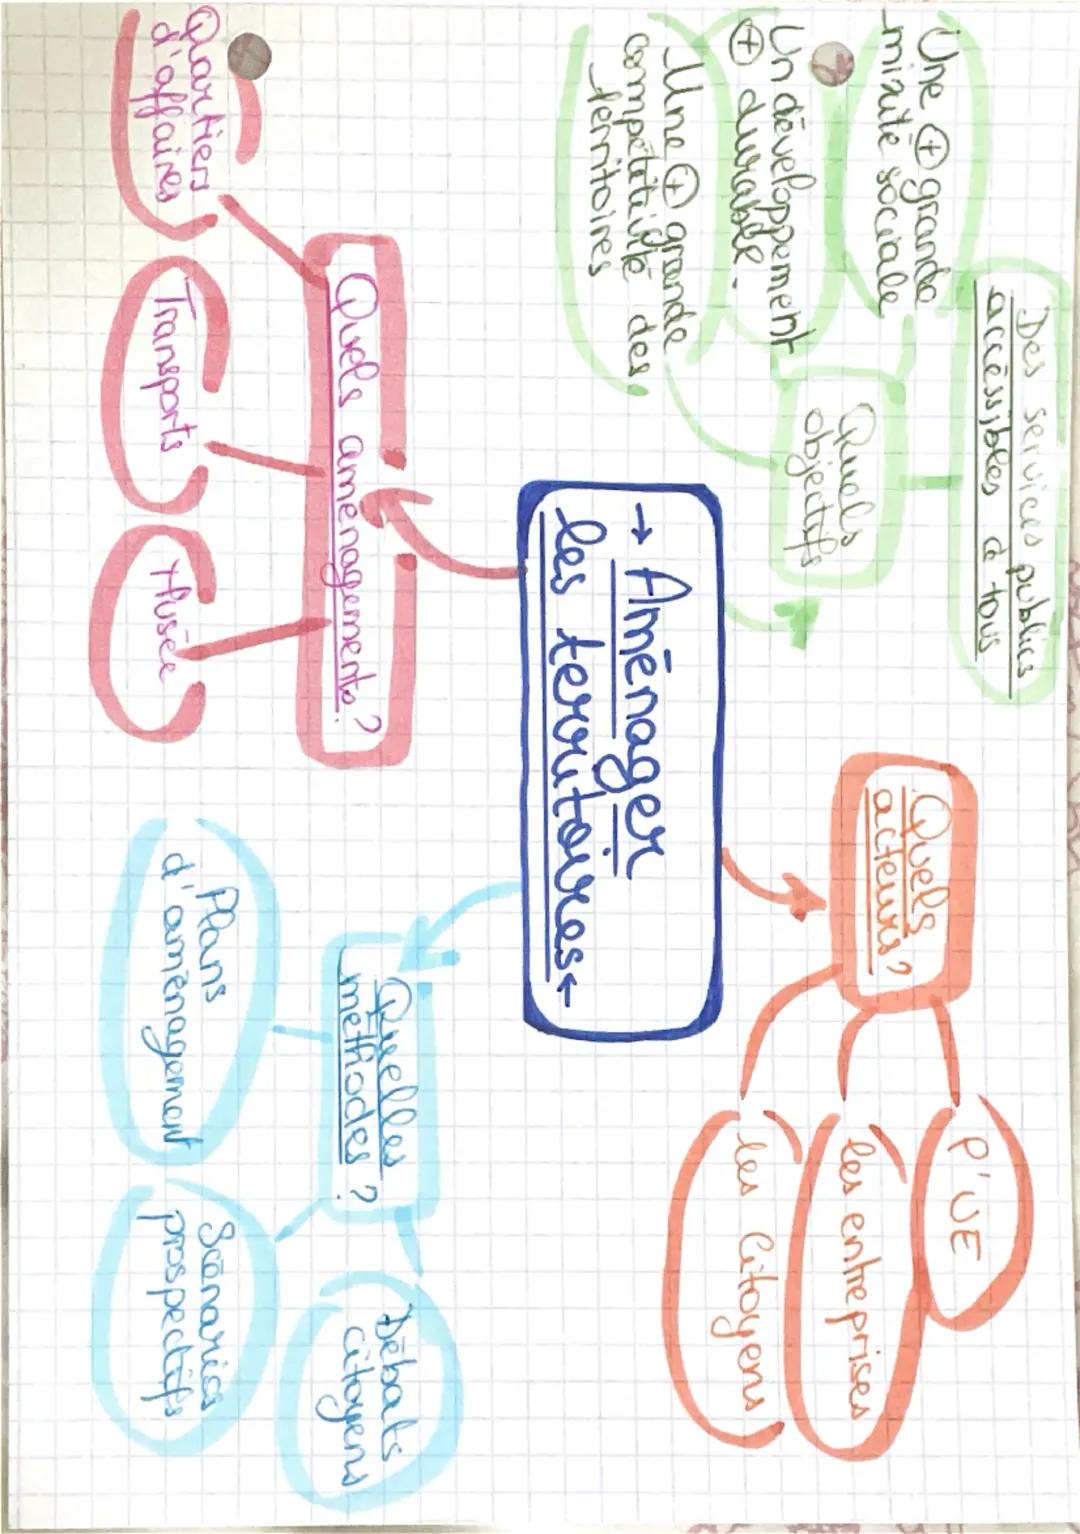 → Aménager
les territoires ←
Quels
objectifs
Des services publics
accessibles à tous
Une ⊕ grande
mixité sociale
Un développement
⊕ durable.
Une ⊕ grande
compétitivité des
territoires
Quels
acteurs ?
l'UE
les entreprises
les Citoyens
Quels aménagements ?
Quartiers
d'affaires
Transports
Musée
Quelles
méthodes ?
Plans
d'aménagement
Scénarios
prospectifs
Débats
citoyens